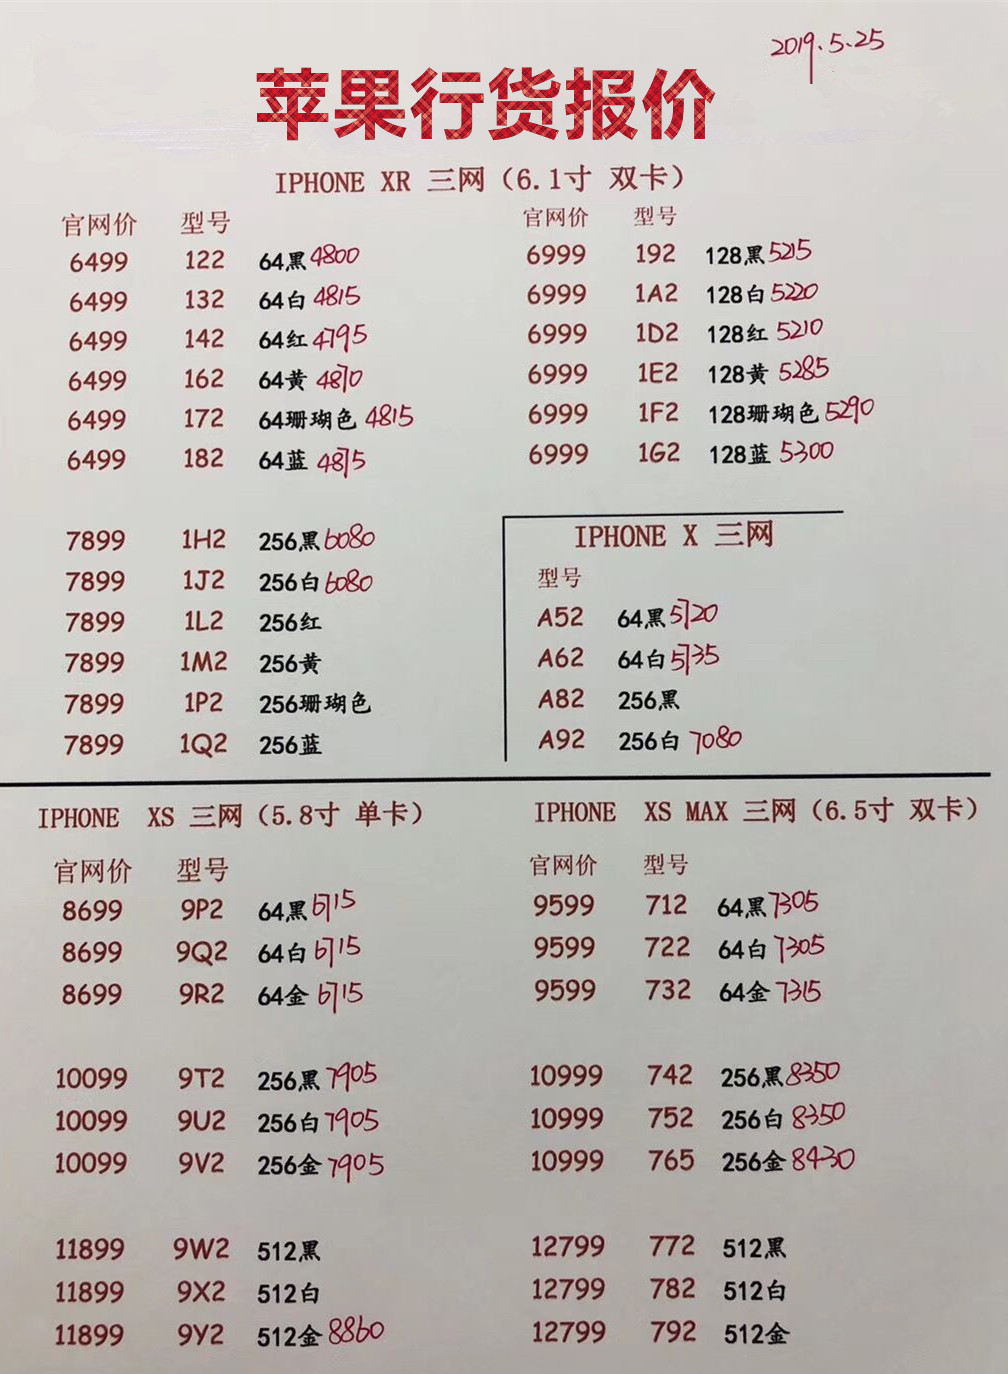 2019.5.25
苹果行货报价
IPHONE XR 三网（6.1寸 双卡）
官网价 型号
6499 122 64黑 4800
6499 132 64白 4815
6499 142 64红 4795
6499 162 64黄 4870
6499 172 64珊瑚色 4815
6499 182 64蓝 4875
官网价 型号
6999 192 128黑 5215
6999 1A2 128白 5220
6999 1D2 128红 5210
6999 1E2 128黄 5285
6999 1F2 128珊瑚色 5290
6999 1G2 128蓝 5300
7899 1H2 256黑 6080
7899 1J2 256白 6080
7899 1L2 256红
7899 1M2 256黄
7899 1P2 256珊瑚色
7899 1Q2 256蓝
IPHONE X 三网
型号
A52 64黑 5720
A62 64白 5735
A82 256黑
A92 256白 7080
IPHONE XS 三网（5.8寸 单卡）
官网价 型号
8699 9P2 64黑 6715
8699 9Q2 64白 6715
8699 9R2 64金 6715
10099 9T2 256黑 7905
10099 9U2 256白 7905
10099 9V2 256金 7905
11899 9W2 512黑
11899 9X2 512白
11899 9Y2 512金 8860
IPHONE XS MAX 三网（6.5寸 双卡）
官网价 型号
9599 712 64黑 7305
9599 722 64白 7305
9599 732 64金 7315
10999 742 256黑 8350
10999 752 256白 8350
10999 765 256金 8430
12799 772 512黑
12799 782 512白
12799 792 512金